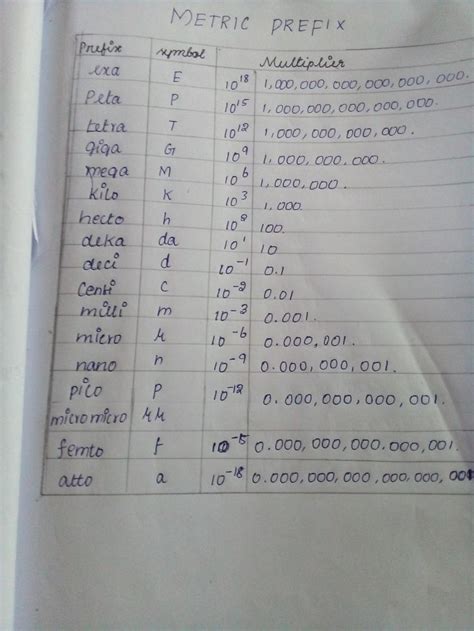 METRIC PREFIX
Prefix symbol Multiplier
exa E 10^18 1,000,000,000,000,000,000.
Peta P 10^15 1,000,000,000,000,000.
tetra T 10^12 1,000,000,000,000.
giga G 10^9 1,000,000,000.
mega M 10^6 1,000,000.
kilo K 10^3 1,000.
hecto h 10^2 100.
deka da 10^1 10
deci d 10^-1 0.1
centi c 10^-2 0.01
milli m 10^-3 0.001.
micro μ 10^-6 0.000,001.
nano n 10^-9 0.000,000,001.
pico p 10^-12 0.000,000,000,001.
micromicro μμ
femto f 10^-15 0.000,000,000.000,001.
atto a 10^-18 0.000,000,000,000,000,001